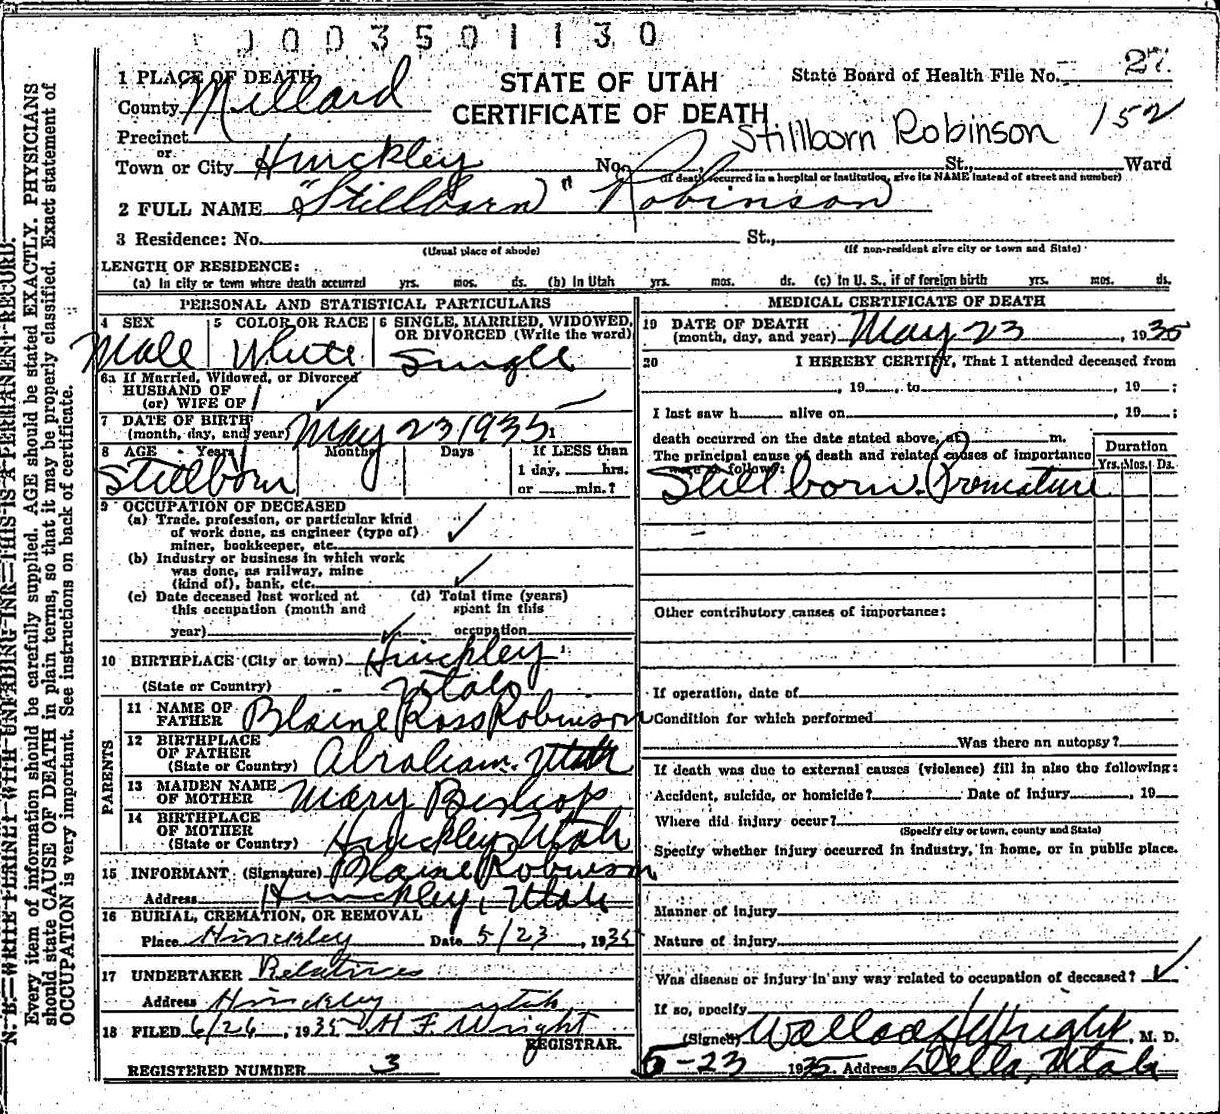 0003501130
1 PLACE OF DEATH
County Millard
STATE OF UTAH
CERTIFICATE OF DEATH
State Board of Health File No. 27
152
Stillborn Robinson
Precinct
or
Town or City Hinckley No. St., Ward
(If death occurred in a hospital or institution, give its NAME instead of street and number)
2 FULL NAME "Stillborn" Robinson
3 Residence: No. St.,
(Usual place of abode) (If non-resident give city or town and State)
LENGTH OF RESIDENCE:
(a) In city or town where death occurred yrs. mos. ds. (b) In Utah yrs. mos. ds. (c) In U. S., if of foreign birth yrs. mos. ds.
PERSONAL AND STATISTICAL PARTICULARS
4 SEX 5 COLOR OR RACE 6 SINGLE, MARRIED, WIDOWED,
OR DIVORCED (Write the word)
Male White Single
6a If Married, Widowed, or Divorced
HUSBAND OF
(or) WIFE OF
7 DATE OF BIRTH
(month, day, and year) May 23 1935
8 AGE Years Months Days If LESS than
1 day, hrs.
or min.?
Stillborn
9 OCCUPATION OF DECEASED
(a) Trade, profession, or particular kind
of work done, as engineer (type of)
miner, bookkeeper, etc.
(b) Industry or business in which work
was done, as railway, mine
(kind of), bank, etc.
(c) Date deceased last worked at
this occupation (month and
year)
(d) Total time (years)
spent in this
occupation
10 BIRTHPLACE (City or town) Hinckley
(State or Country) Utah
PARENTS
11 NAME OF
FATHER Blaine Ross Robinson
12 BIRTHPLACE
OF FATHER
(State or Country) Abraham. Utah
13 MAIDEN NAME
OF MOTHER Mary Bishop
14 BIRTHPLACE
OF MOTHER
(State or Country) Hinckley, Utah
15 INFORMANT (Signature) Blaine Robinson
Address Hinckley, Utah
16 BURIAL, CREMATION, OR REMOVAL
Place Hinckley Date 5/23, 1935
17 UNDERTAKER Relatives
Address Hinckley Utah
18 FILED 6/26, 1935 H F Wright
REGISTRAR.
REGISTERED NUMBER 3
MEDICAL CERTIFICATE OF DEATH
19 DATE OF DEATH
(month, day, and year) May 23, 1935
20 I HEREBY CERTIFY, That I attended deceased from
, 19 , to , 19 ;
I last saw h alive on , 19 ;
death occurred on the date stated above, at m.
The principal cause of death and related causes of importance
were as follows:
Duration
Yrs. Mos. Ds.
Stillborn. Premature
Other contributory causes of importance:
If operation, date of
Condition for which performed
Was there an autopsy?
If death was due to external causes (violence) fill in also the following:
Accident, suicide, or homicide? Date of injury , 19
Where did injury occur?
(Specify city or town, county and State)
Specify whether injury occurred in industry, in home, or in public place.
Manner of injury
Nature of injury
Was disease or injury in any way related to occupation of deceased?
If so, specify
(Signed) Wallace Wright, M. D.
5-23 1935 Address Delta, Utah
N. B.—WRITE PLAINLY WITH UNFADING INK—THIS IS A PERMANENT RECORD.
Every item of information should be carefully supplied. AGE should be stated EXACTLY. PHYSICIANS
should state CAUSE OF DEATH in plain terms, so that it may be properly classified. Exact statement of
OCCUPATION is very important. See instructions on back of certificate.